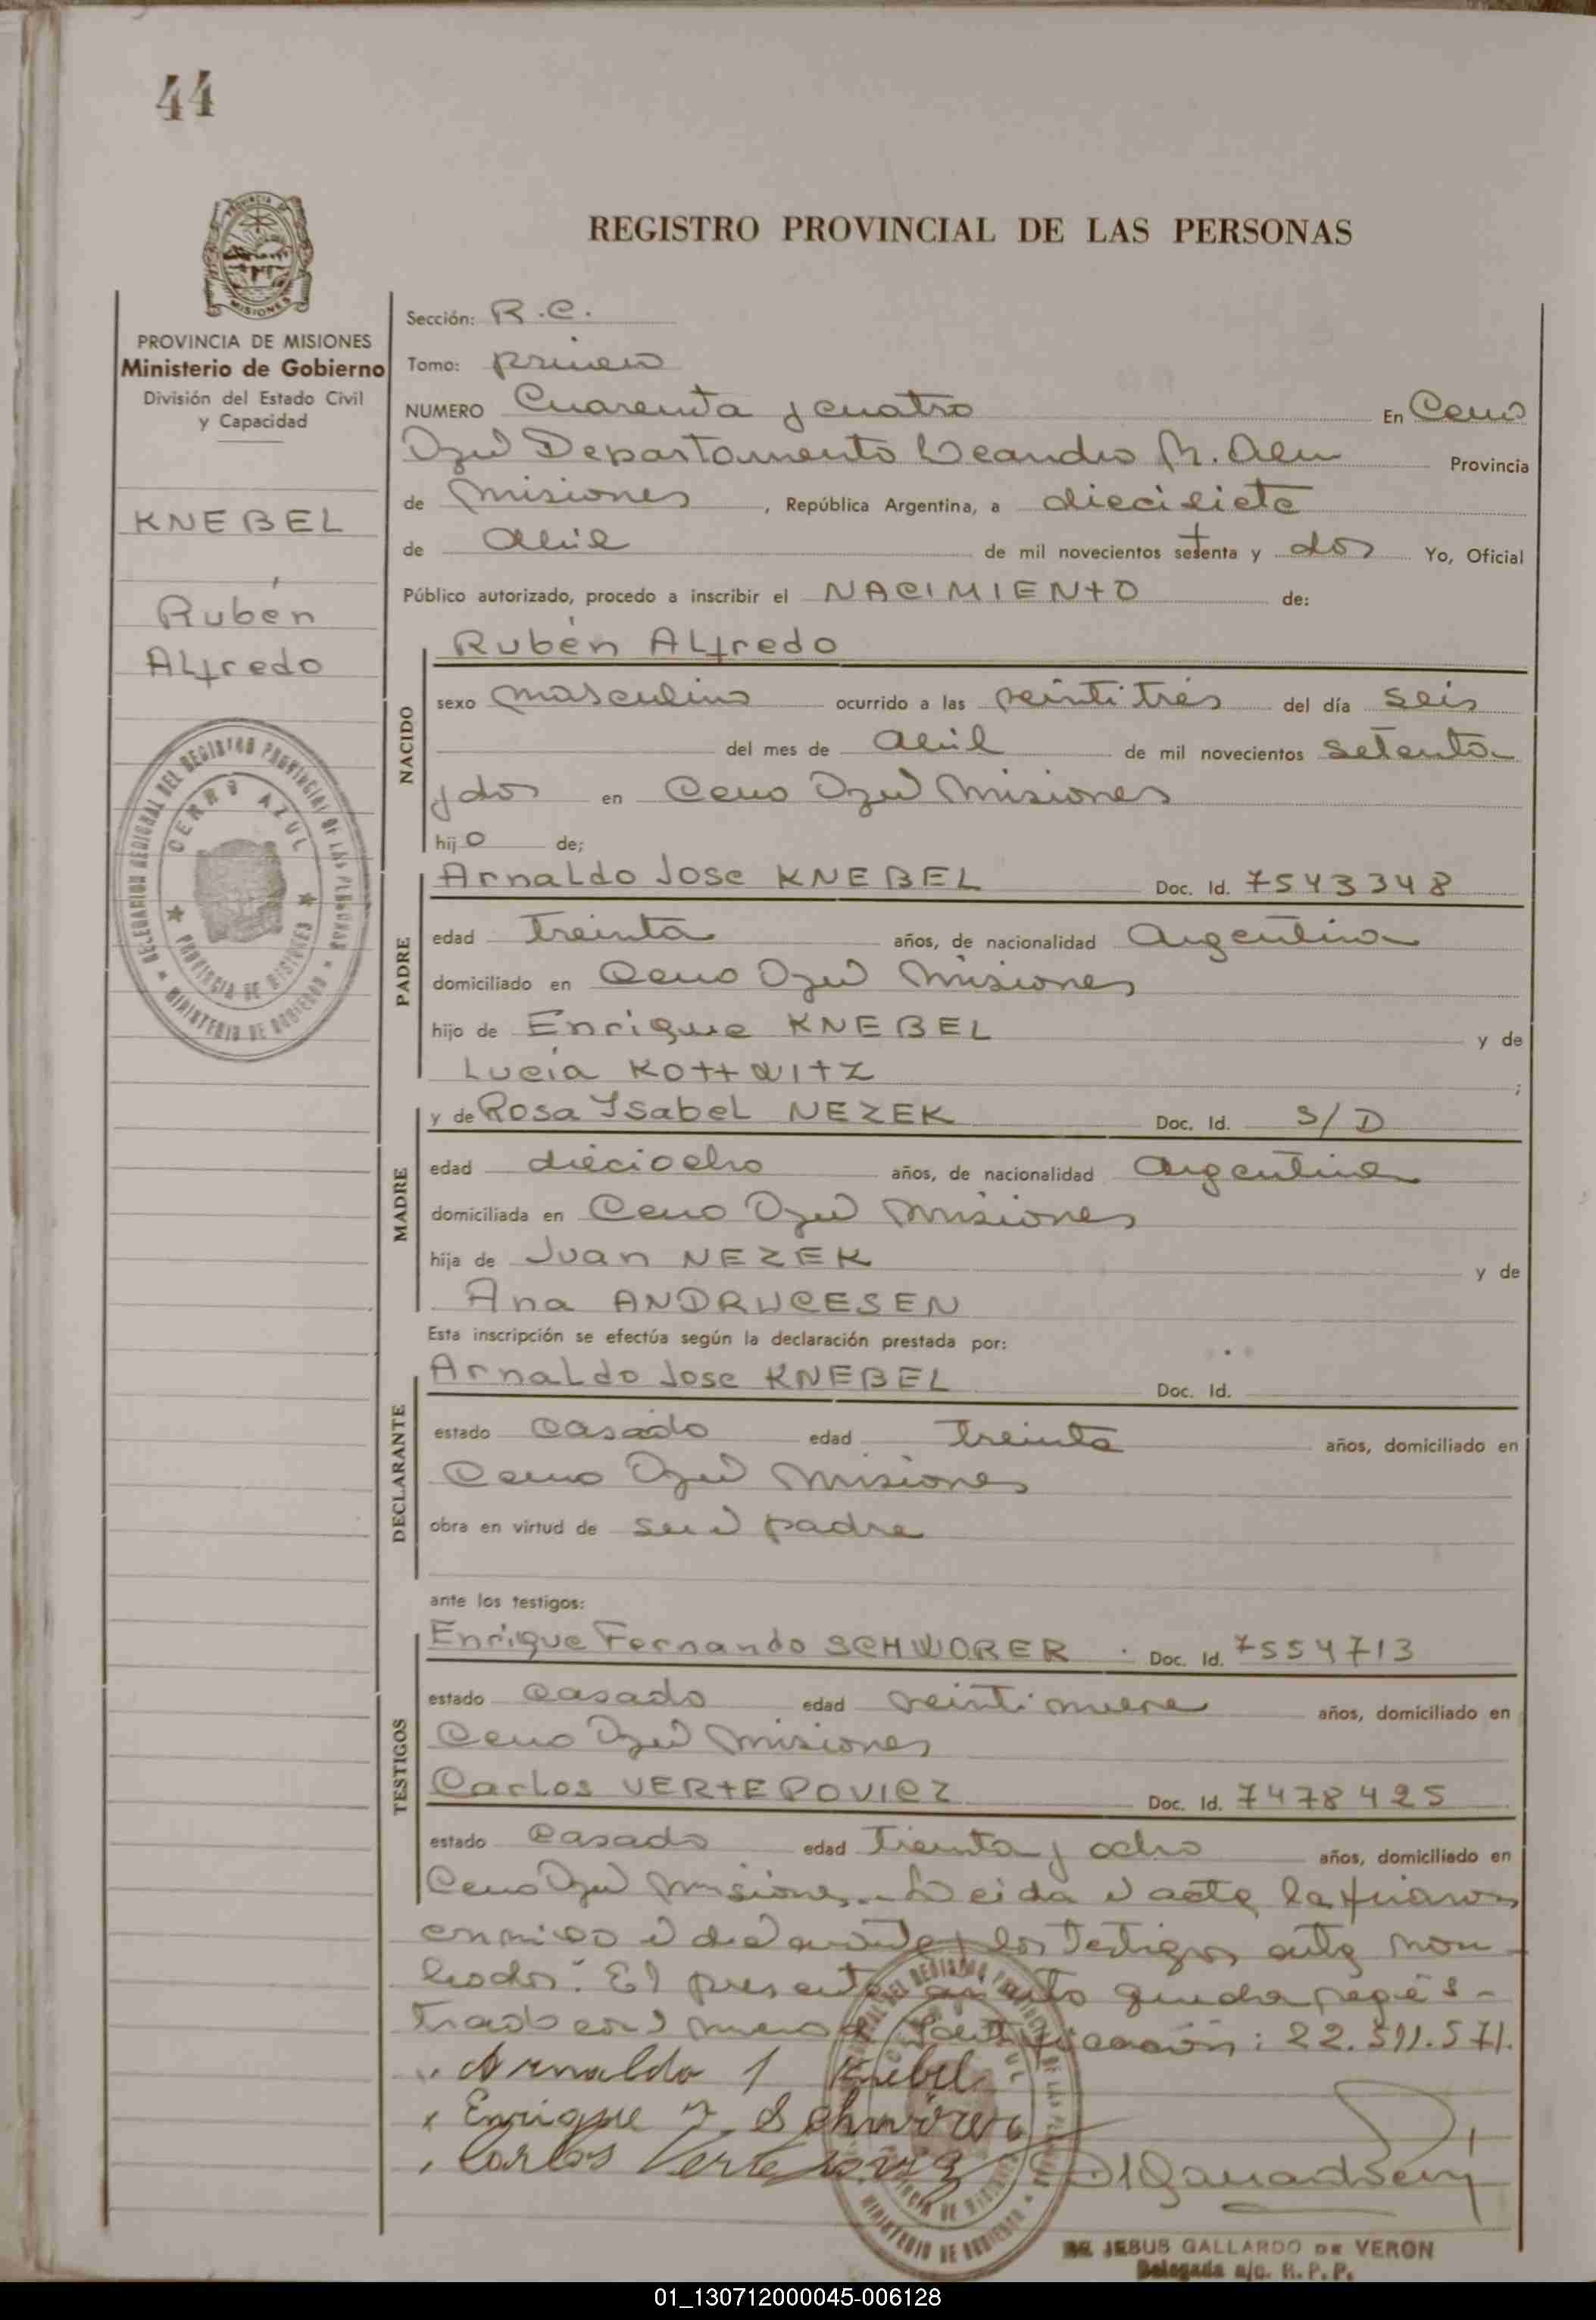 44
REGISTRO PROVINCIAL DE LAS PERSONAS
PROVINCIA DE MISIONES
Ministerio de Gobierno
División del Estado Civil
y Capacidad
KNEBEL
Rubén
Alfredo
DELEGACION REGIONAL DEL REGISTRO PROVINCIAL DE LAS PERSONAS
CERRO AZUL
PROVINCIA DE MISIONES
MINISTERIO DE GOBIERNO
Sección: R.C.
Tomo: primero
NUMERO Cuarenta y cuatro En Cerro
Azul Departamento Leandro N. Alem Provincia
de Misiones, República Argentina, a diecisiete
de Abril de mil novecientos setenta y dos Yo, Oficial
Público autorizado, procedo a inscribir el NACIMIENTO de:
NACIDO
Rubén Alfredo
sexo masculino ocurrido a las veintitrés del día seis
del mes de Abril de mil novecientos setenta
y dos en Cerro Azul Misiones
hijo de;
PADRE
Arnaldo Jose KNEBEL Doc. Id. 7543348
edad treinta años, de nacionalidad Argentina
domiciliado en Cerro Azul Misiones
hijo de Enrique KNEBEL y de
Lucía KOTTWITZ ;
MADRE
y de Rosa Isabel NEZEK Doc. Id. S/D
edad dieciocho años, de nacionalidad Argentina
domiciliada en Cerro Azul Misiones
hija de Juan NEZEK y de
Ana ANDRUCESEN
Esta inscripción se efectúa según la declaración prestada por:
DECLARANTE
Arnaldo Jose KNEBEL Doc. Id.
estado casado edad treinta años, domiciliado en
Cerro Azul Misiones
obra en virtud de ser el padre
ante los testigos:
TESTIGOS
Enrique Fernando SCHWORER Doc. Id. 7554713
estado casado edad veintinueve años, domiciliado en
Cerro Azul Misiones
Carlos VERTEPOVICZ Doc. Id. 7478425
estado casado edad treinta y ocho años, domiciliado en
Cerro Azul Misiones. Leida el acta la firaron
conmigo el declarante y los testigos antes nom-
brados. El presente asiento queda regis-
trado con el numero de Identificación: 22.511.571.
Arnaldo J Knebel
x Enrique F Schwörer
Carlos Vertepovicz
DE JESUS GALLARDO DE VERON
Delegada a/c. R.P.P.
01_130712000045-006128